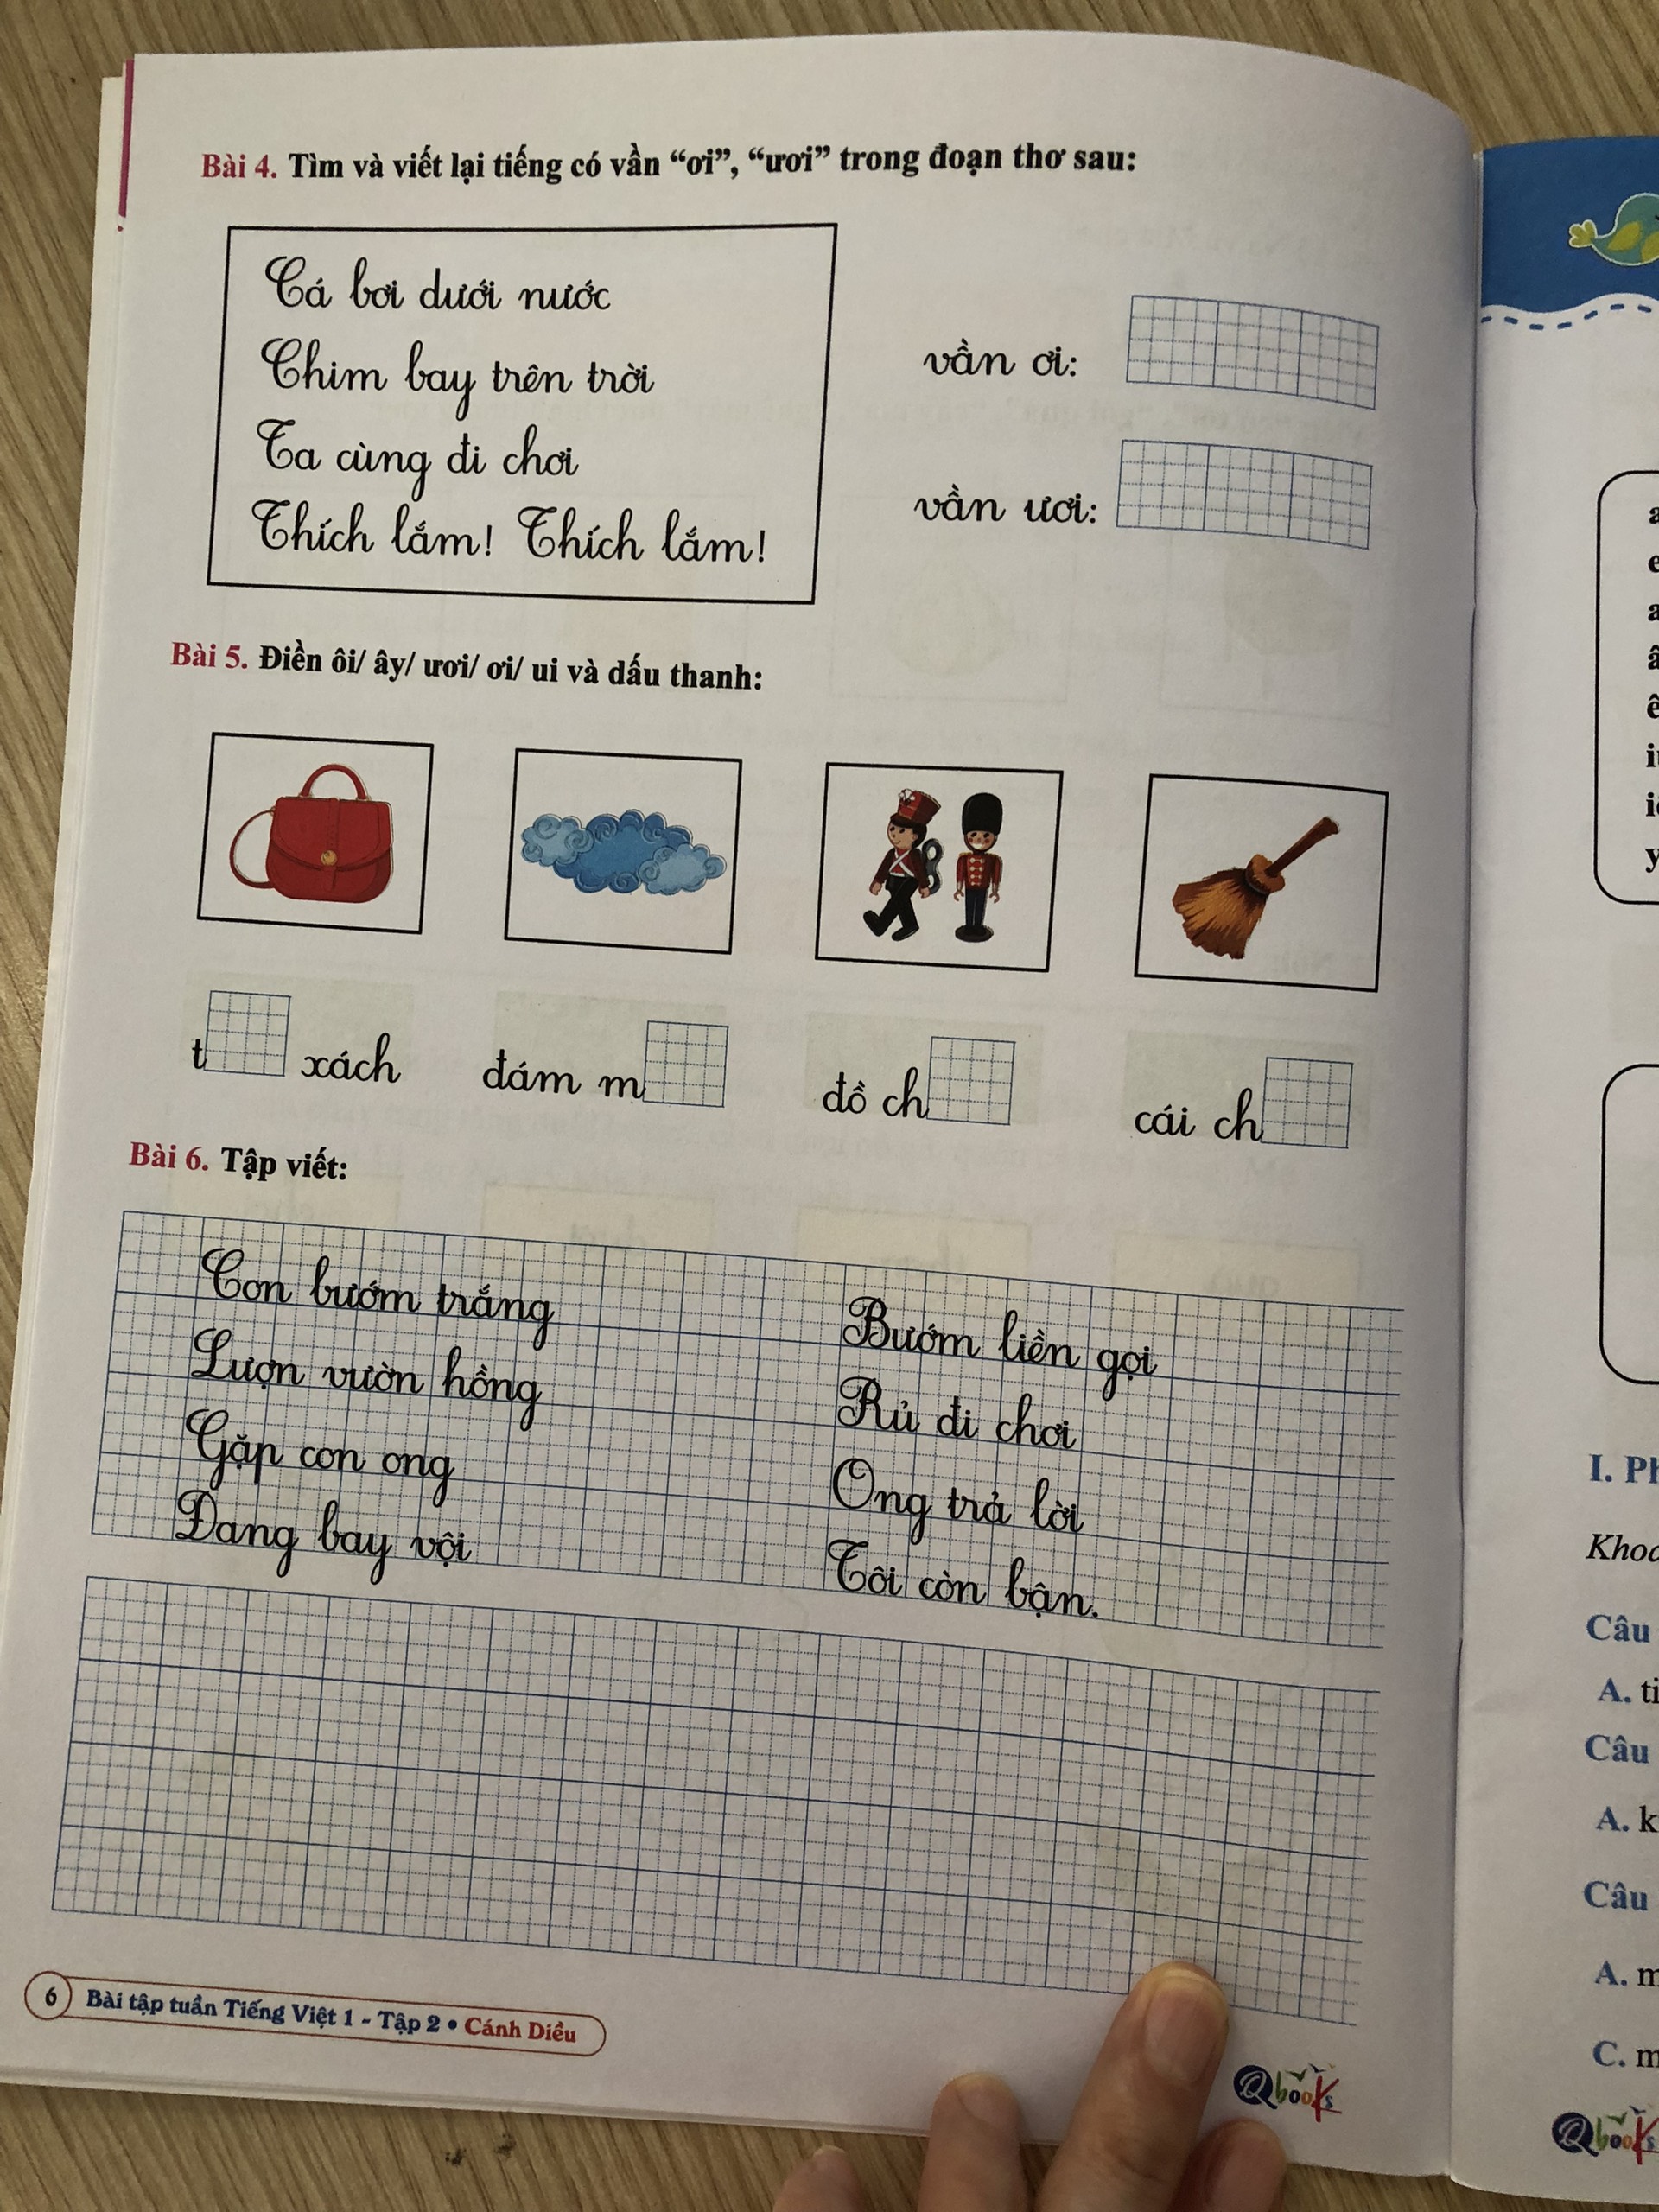 Bài 4. Tìm và viết lại tiếng có vần “ơi”, “ươi” trong đoạn thơ sau:
Cá bơi dưới nước
Chim bay trên trời
Ta cùng đi chơi
Thích lắm! Thích lắm!
vần ơi:
vần ươi:
Bài 5. Điền ôi/ ây/ ươi/ ơi/ ui và dấu thanh:
t xách
đám m
đồ ch
cái ch
Bài 6. Tập viết:
Con bướm trắng
Lượn vườn hồng
Gặp con ong
Đang bay vội
Bướm liền gọi
Rủ đi chơi
Ong trả lời
Tôi còn bận.
6 Bài tập tuần Tiếng Việt 1 - Tập 2 • Cánh Diều
Qbooks
I. 
Câu
A.
Câu
A.
Câu
A.
C.
Qbooks